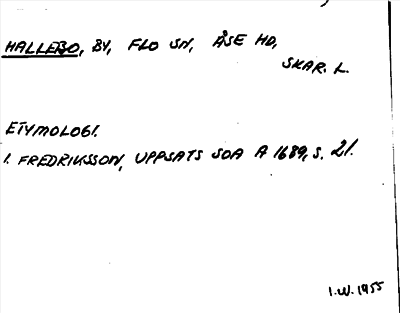 HALLEBO, BY, FLO SN, ÅSE HD,
SKAR. L.
ETYMOLOGI.
I. FREDRIKSSON, UPPSATS SOA A 1689, S. 21.
I.W. 1955